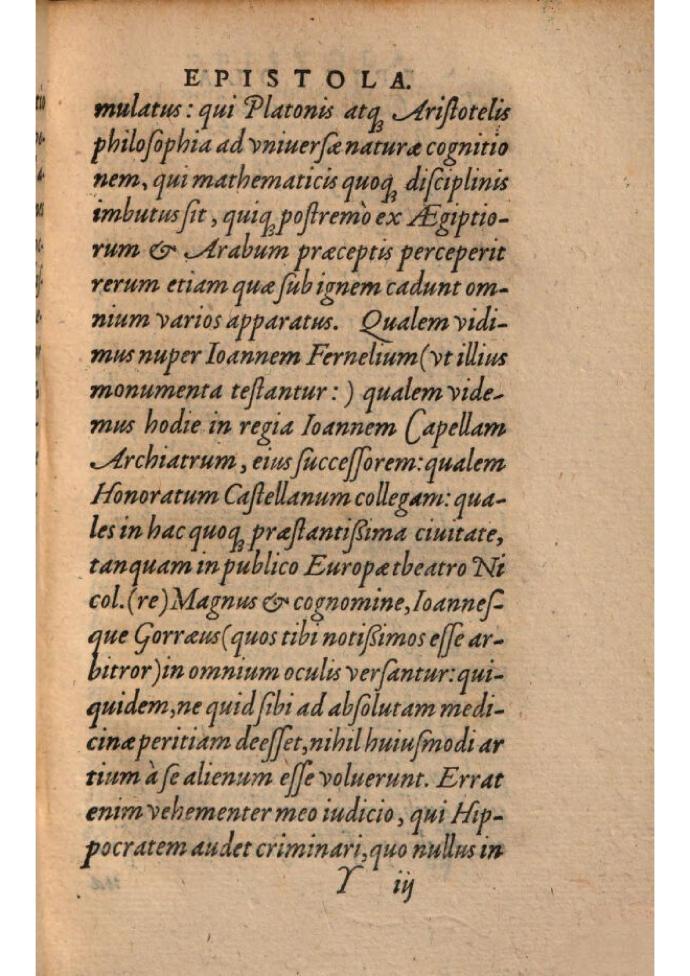 EPISTOLA.
mulatus: qui Platonis atq; Aristotelis
philosophia ad vniuersæ naturæ cognitio
nem, qui mathematicis quoq; disciplinis
imbutus sit, quiq; postremò ex Ægiptio-
rum & Arabum præceptis perceperit
rerum etiam quæ sub ignem cadunt om-
nium varios apparatus. Qualem vidi-
mus nuper Ioannem Fernelium (vt illius
monumenta testantur:) qualem vide-
mus hodie in regia Ioannem Capellam
Archiatrum, eius successorem: qualem
Honoratum Castellanum collegam: qua-
les in hac quoq; præstantißima ciuitate,
tanquam in publico Europæ theatro Ni
col. (re) Magnus & cognomine, Ioannes-
que Gorræus (quos tibi notißimos esse ar-
bitror) in omnium oculis versantur: qui-
quidem, ne quid sibi ad absolutam medi-
cinæ peritiam deesset, nihil huiusmodi ar
tium à se alienum esse voluerunt. Errat
enim vehementer meo iudicio, qui Hip-
pocratem audet criminari, quo nullus in
Y iij